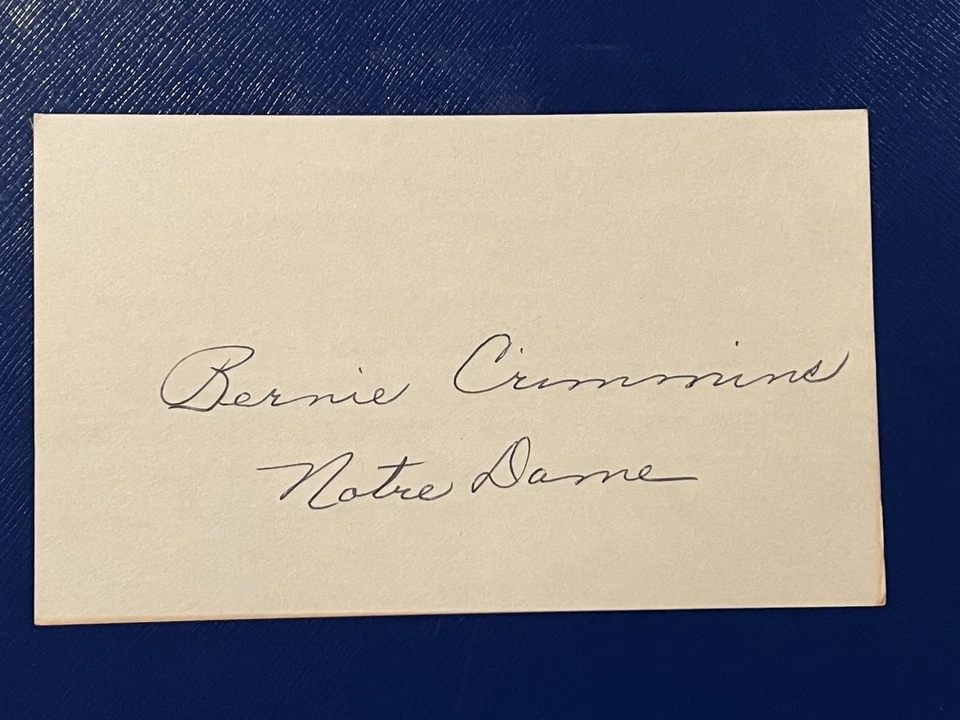 Bernie Crimmins
Notre Dame